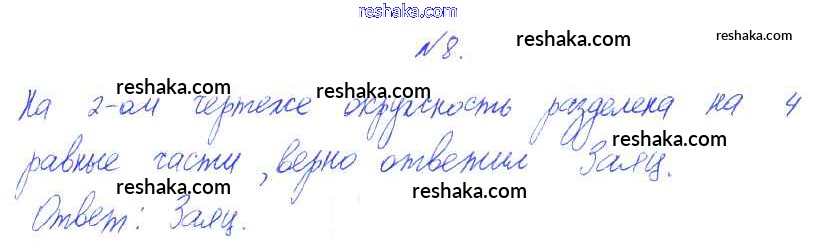 reshaka.com
№8.
reshaka.com
reshaka.com
reshaka.com
На 2-ом чертеже окружность разделена на 4
reshaka.com
reshaka.com
равные части, верно ответил Заяц.
reshaka.com
reshaka.com
Ответ: Заяц.